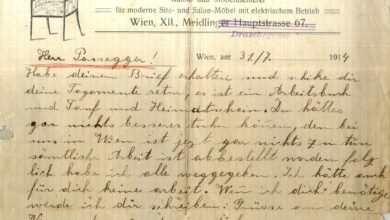 für moderne Sitz- und Salon-Möbel mit elektrischem Betrieb
Wien, XII., Meidlinger Hauptstrasse 67.
Herr Passegger! Wien, am 31/7. 1914
Habe deinen Brief erhalten und schike dir
deine Togomente retur, es ist ein Arbeitsbuch
und Tauf und Heimatschein. Du hättes
gar nichts besseres tuhn könen, den bei
uns in Wien ist jezt gar nichts zu tun
sämtliche Arbeit ist abbestellt worden folg
lich habe ich alle weggegeben. Ich hätte auch
für dich keine arbeit. Wen ich dich benötige
werde ich dir schreiben. Grüsse an deine